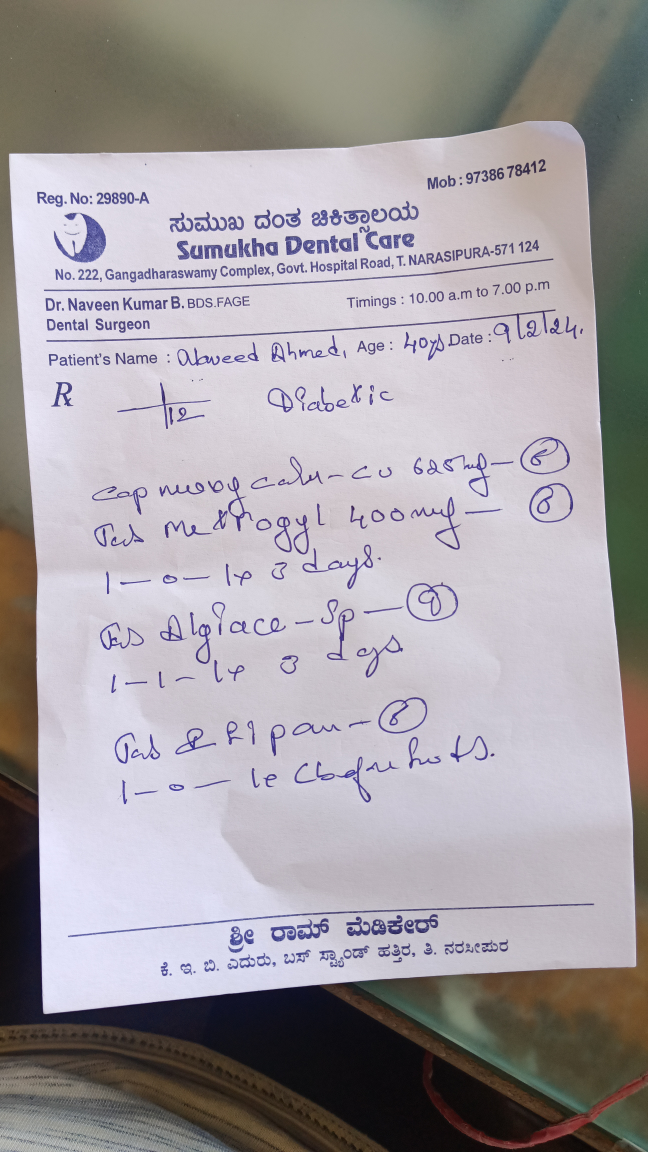 Reg. No: 29890-A
Mob : 97386 78412
ಸುಮುಖ ದಂತ ಚಿಕಿತ್ಸಾಲಯ
Sumukha Dental Care
No. 222, Gangadharaswamy Complex, Govt. Hospital Road, T. NARASIPURA-571 124
Dr. Naveen Kumar B. BDS.FAGE
Timings : 10.00 a.m to 7.00 p.m
Dental Surgeon
Patient's Name : Ahmed, Age : 40 Date : 9/2/24.
R 12 Diabetic
Cap CV 625mg - 6
Tab Metrogyl 400mg - 6
1-0-1x 3 days.
Tab - SP - 9
1-1-1x 3 days
Tab - 6
1-0-1
ಶ್ರೀ ರಾಮ್ ಮೆಡಿಕೇರ್
ಕೆ. ಇ. ಬಿ. ಎದುರು, ಬಸ್ ಸ್ಟ್ಯಾಂಡ್ ಹತ್ತಿರ, ತಿ. ನರಸೀಪುರ